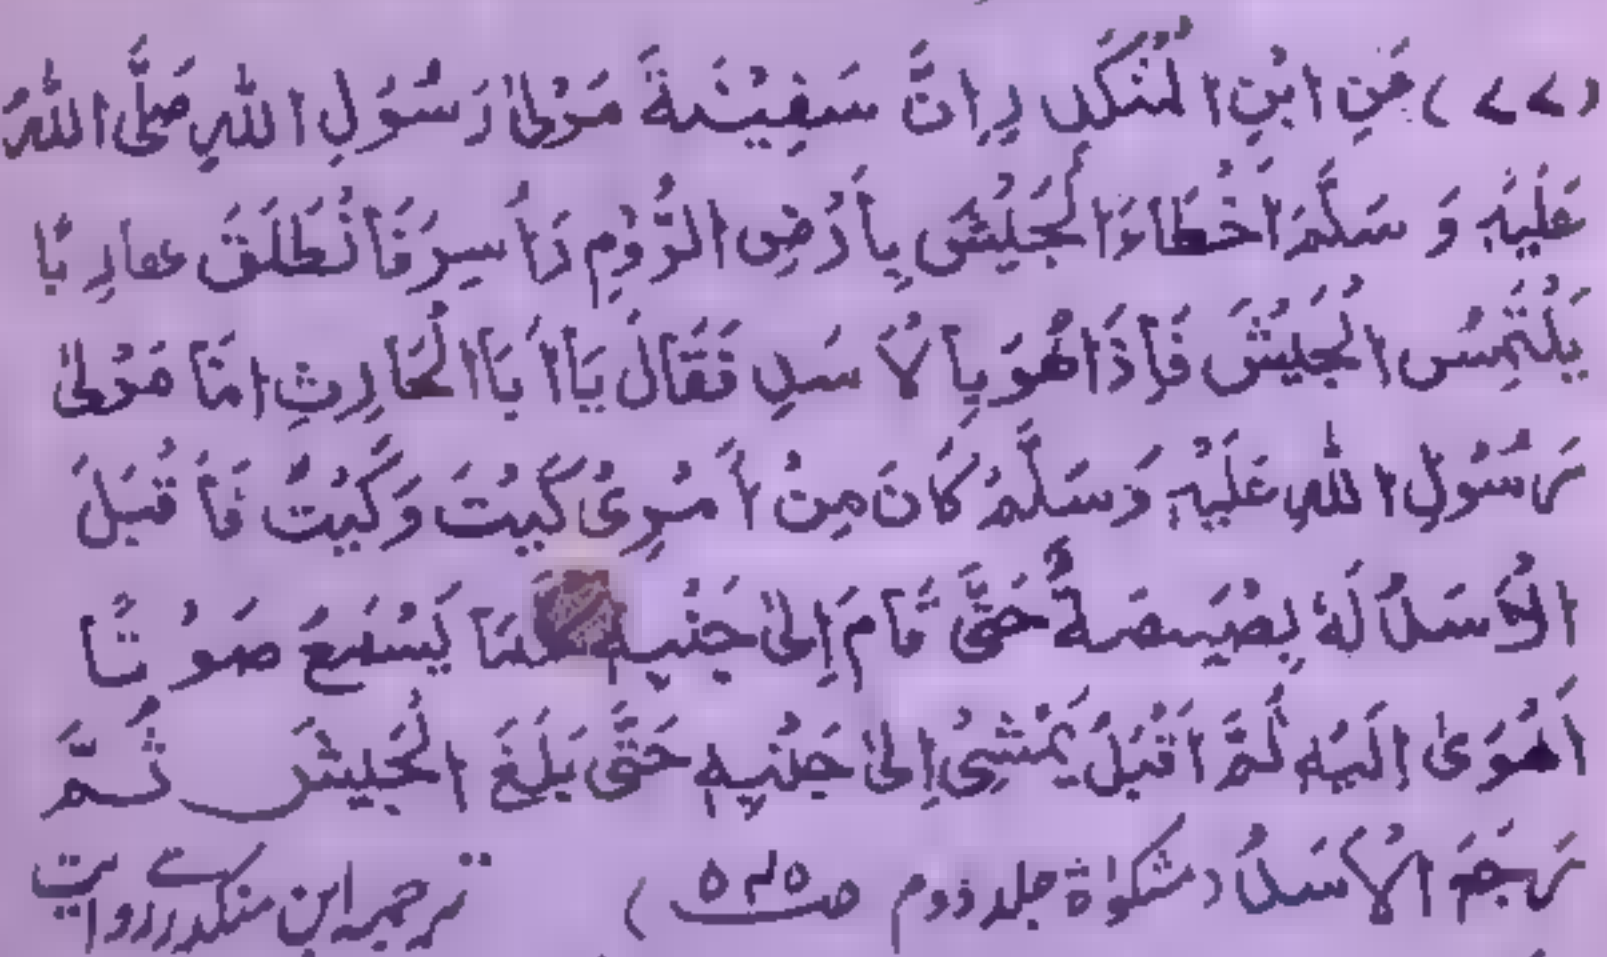 (۷۷) عَنِ ابْنِ الْمُنْكَدِرِ اِنَّ سَفِيْنَةَ مَوْلٰی رَسُوْلِ اللهِ صَلَّی اللهُ
عَلَيْهِ وَ سَلَّمَ اَخْطَاءَ الْجَيْشَ بِاَرْضِ الرُّوْمِ اَوْ اُسِرَ فَانْطَلَقَ هَارِبًا
يَلْتَمِسُ الْجَيْشَ فَاِذَا هُوَ بِالْاَسَدِ فَقَالَ يَا اَبَا الْحَارِثِ اَنَا مَوْلٰی
رَسُوْلِ اللهِ عَلَيْهِ وَسَلَّمَ كَانَ مِنْ اَمْرِیْ كَيْتَ وَكَيْتَ فَاَقْبَلَ
الْاَسَدُ لَهٗ بَصْبَصَةٌ حَتّٰی قَامَ اِلٰی جَنْبِهٖ يَسْمَعُ صَوْتًا
اَهْوٰی اِلَيْهِ ثُمَّ اَقْبَلَ يَمْشِیْ اِلٰی جَنْبِهٖ حَتّٰی بَلَغَ الْجَيْشَ ثُمَّ
رَجَعَ الْاَسَدُ (مشکوٰۃ جلد دوم ص۵۴۵) ترجمہ ابن منکدر روایت